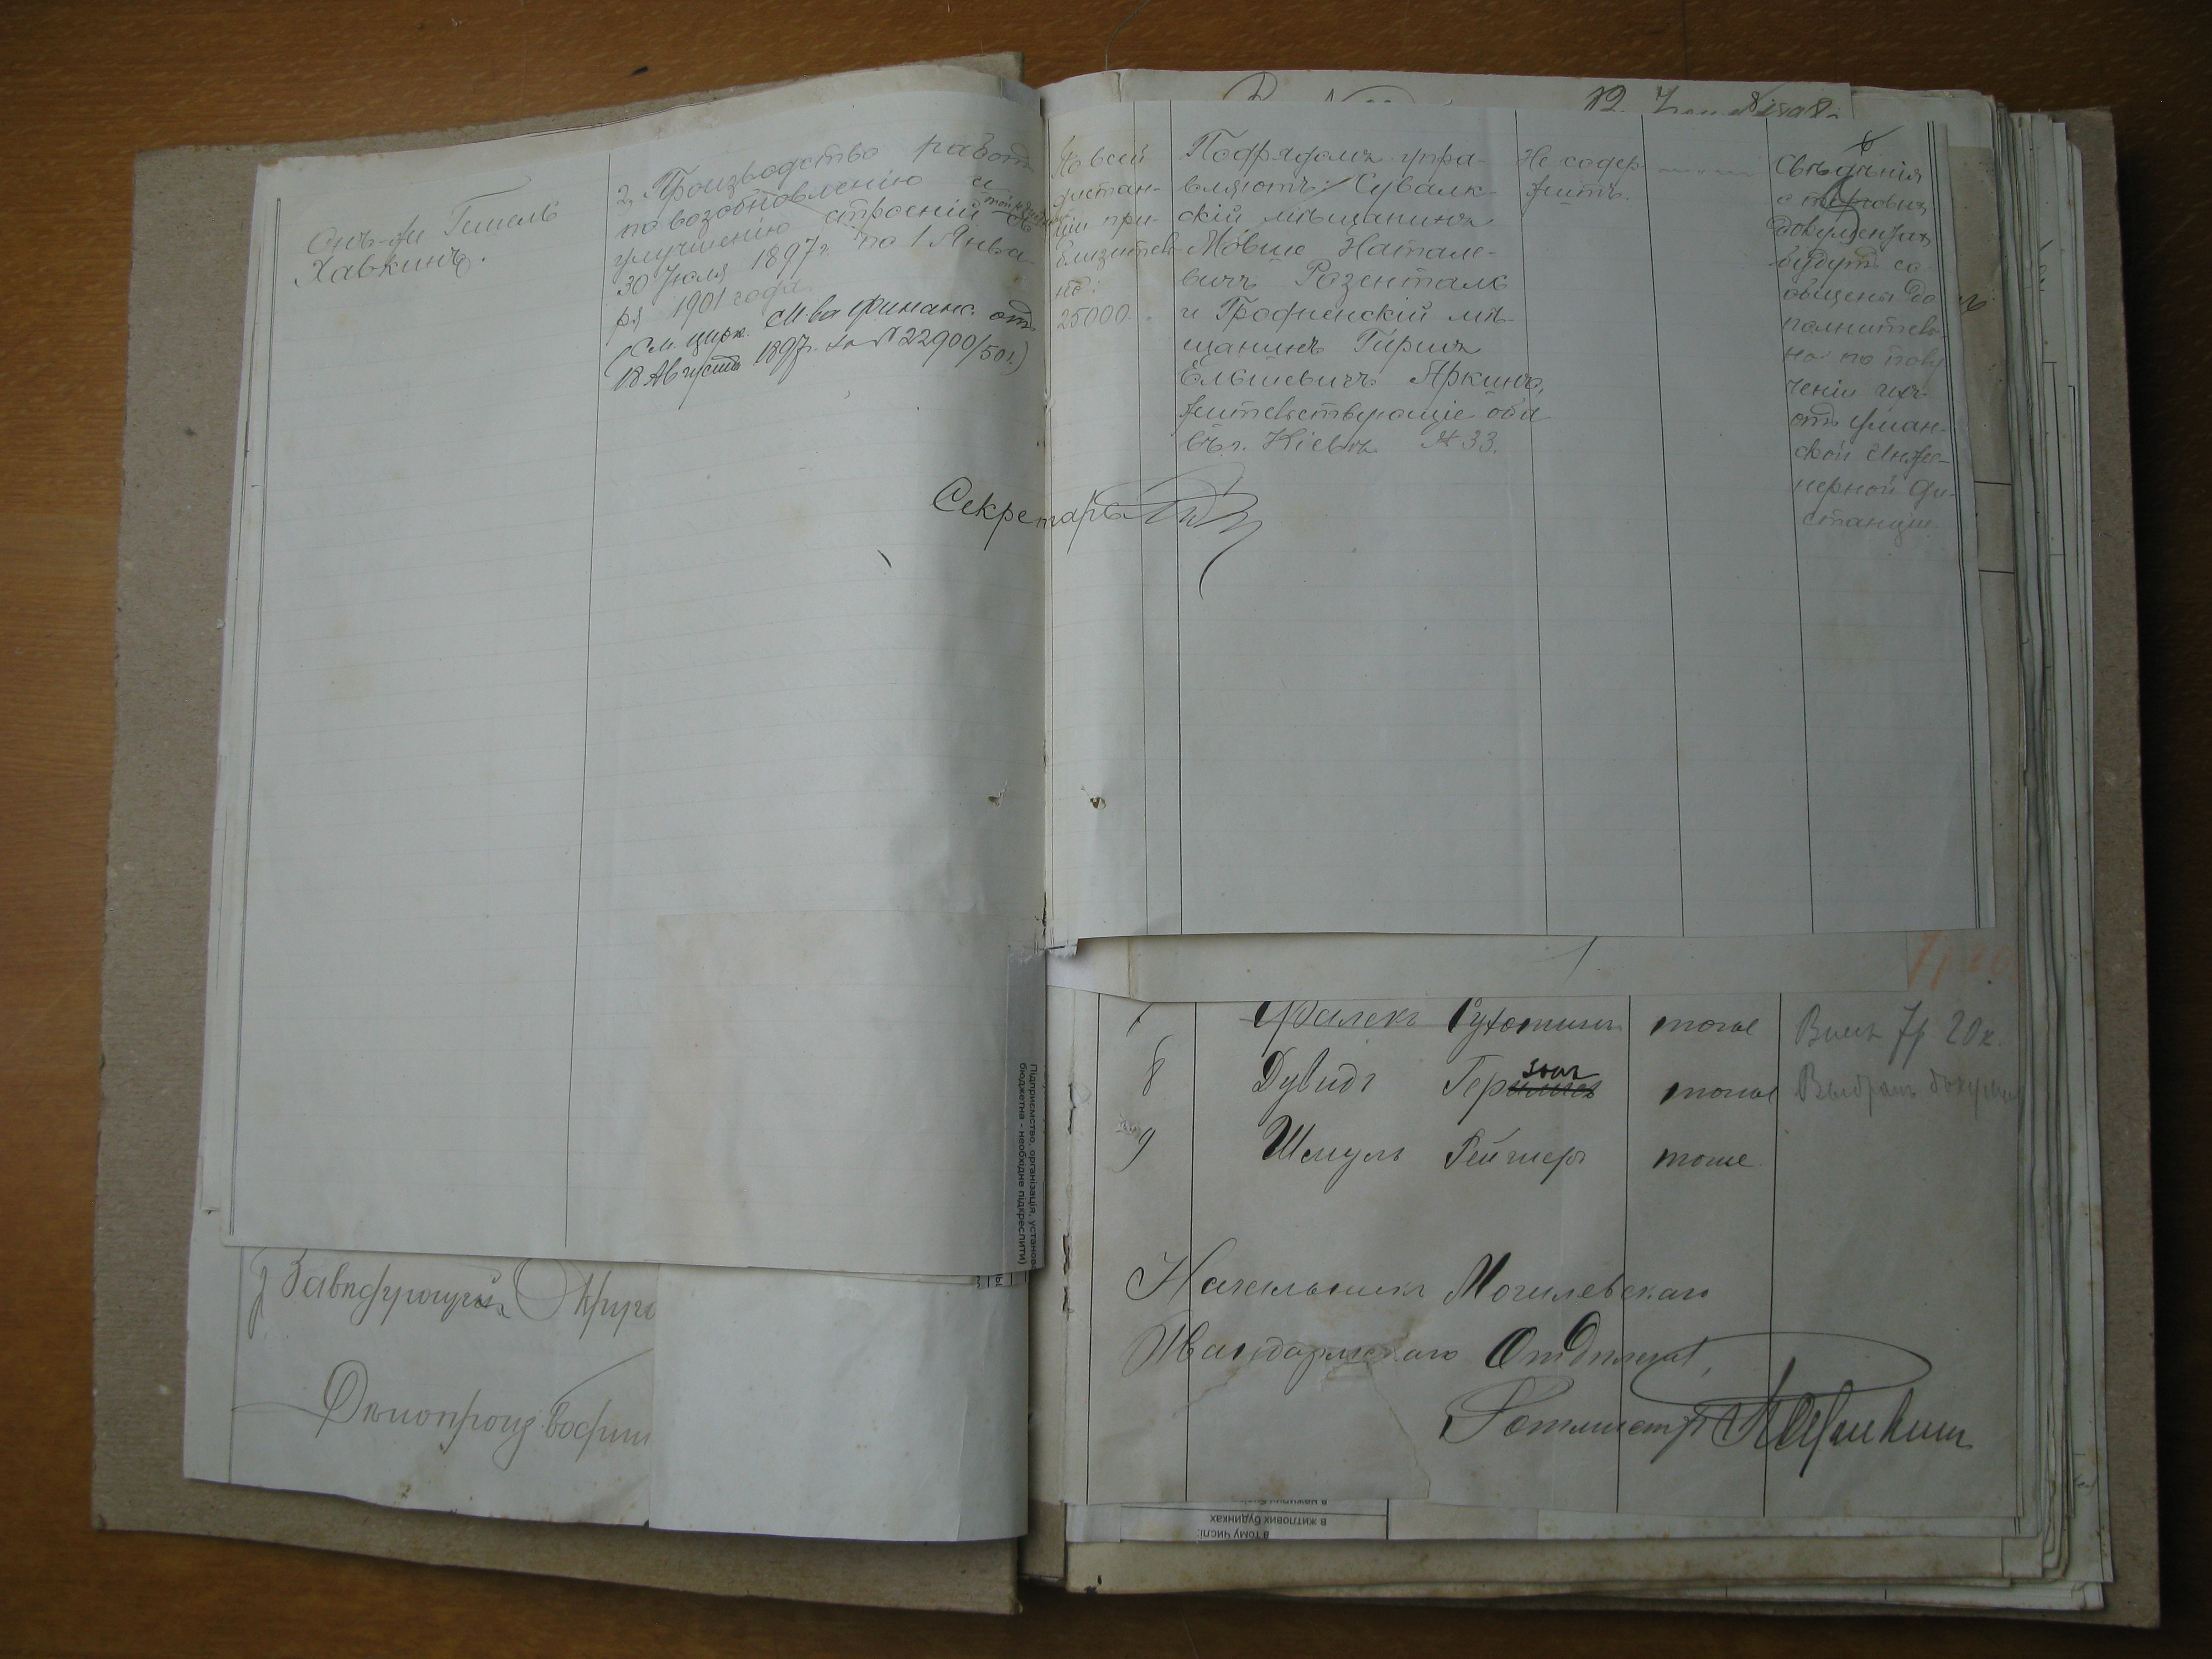 Онъ-же Гишель
Хавкинъ.
2, Производство работъ
по возобновленію и
улучшенію строеній съ
30 Іюля 1897 г. по 1 Янва-
ря 1901 года.
(См. цирк. М-ва Финанс. отъ
18 Августа 1897 г. за № 22900/501.)
По всей
дистан-
ціи при-
близитель-
но:
25000
Подрядомъ упра-
вляютъ: Сувалк-
скій мѣщанинъ
Мовше Нотале-
вичъ Розенталь
и Гродненскій мѣ-
щанинъ Гиршъ
Ельяшевичъ Аркинъ,
жительствующіе оба
въ г. Кіевѣ № 33.
Не содер-
житъ.
Свѣдѣнія
о торговыхъ
документахъ
будутъ со-
общены до
полнитель
но по полу
ченіи ихъ
отъ Уман-
ской Инже-
нерной Ди-
станціи
Секретарь
тоже Взялъ 7 р. 20 к.
8 Дувидъ Гер зонъ тоже Выбралъ
9 Шмуль Рейтеръ тоже
Начальникъ Могилевскаго
Жандармскаго Отдѣленія,
Ротмистръ
Завѣдующій
Дѣлопроизводит
Підприємство, організація, установа
бюджетна – необхідне підкреслити)
в тому числі:
в житлових будинках